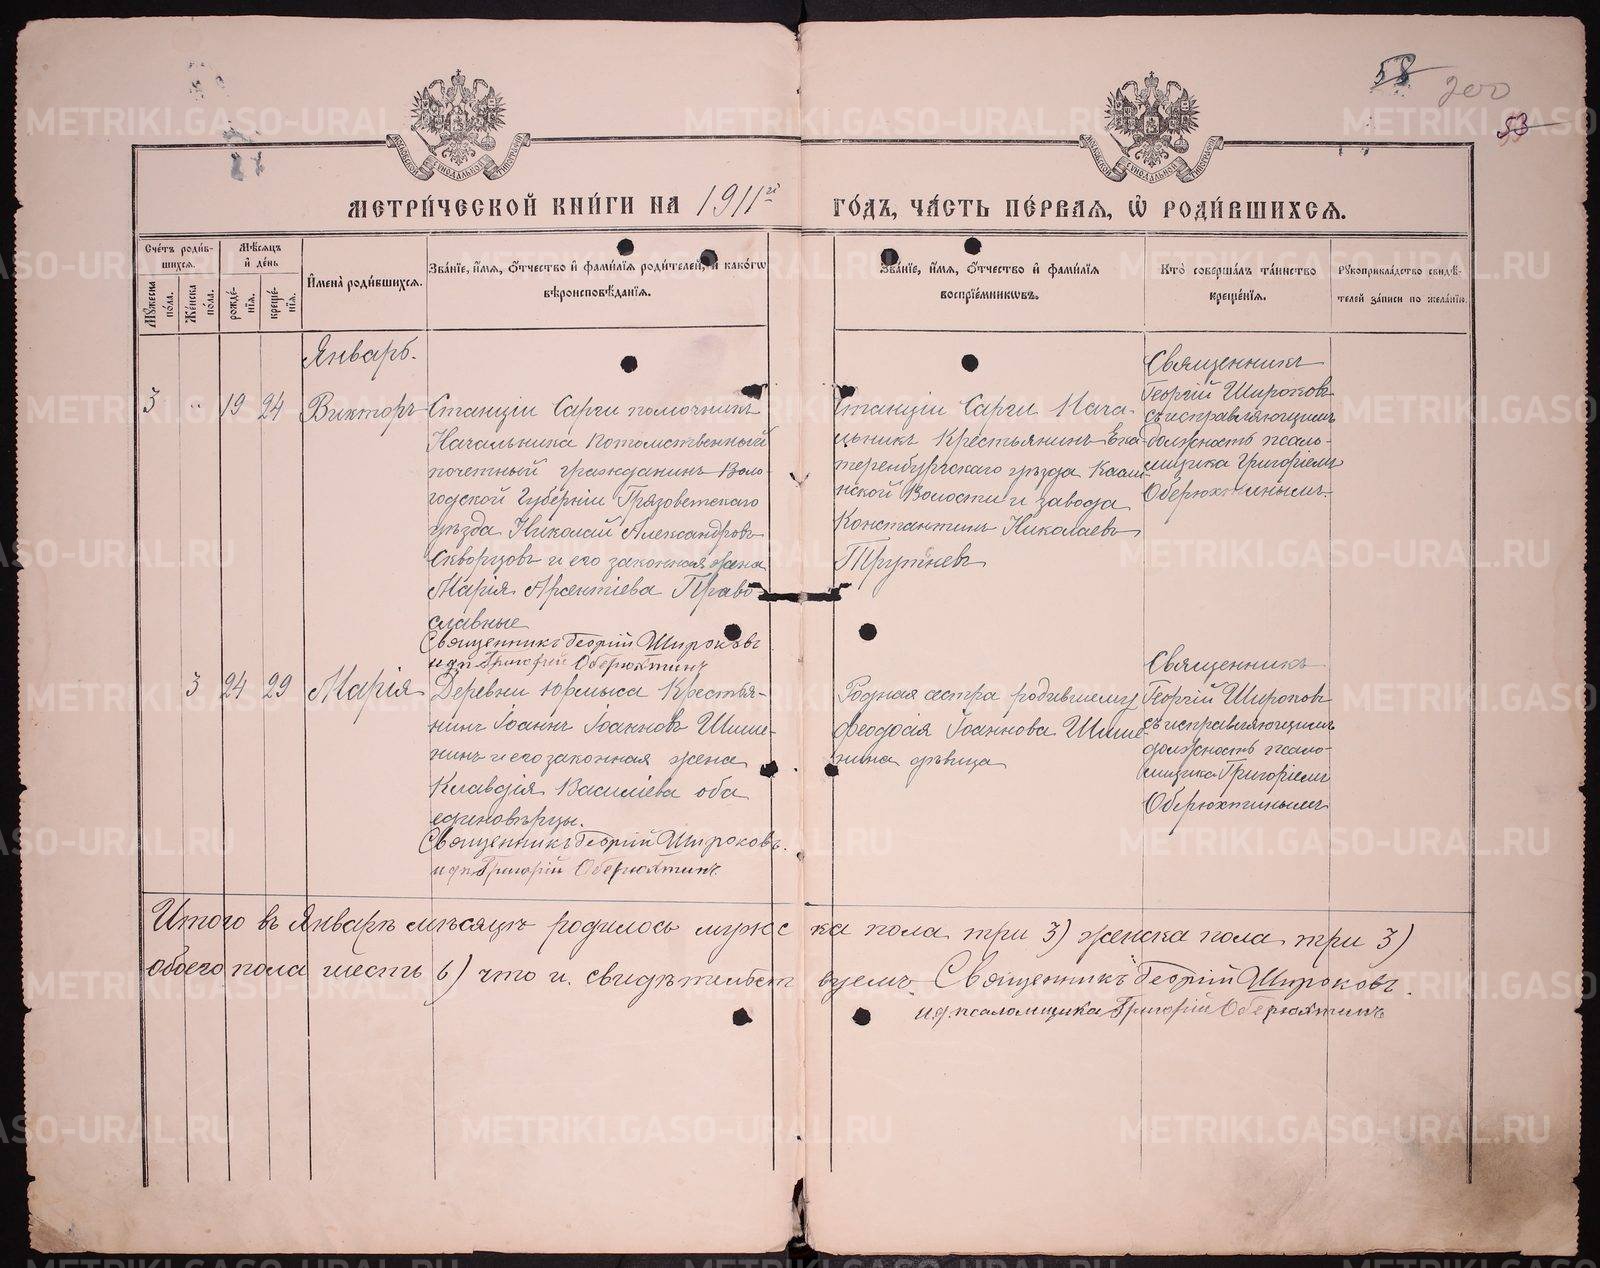 58 200
53
МЕТРИ́ЧЕСКОЙ КНИ́ГИ НА 1911й ГО́ДЪ, ЧА́СТЬ ПЕ́РВАЯ, Ѡ҆ РОДИ́ВШИХСЯ.
Сче́тъ роди́вшихся.
Мѣ́сяцъ и҆ де́нь
Мꙋ́жеска по́ла.
Же́нска по́ла.
рожде́нїя.
креще́нїя.
И҆мена̀ роди́вшихся.
Зва́нїе, и҆́мя, ѻ҆́тчество и҆ фами́лїя роди́телей, и҆ како́гѡ
вѣроисповѣ́данїя.
Зва́нїе, и҆́мя, ѻ҆́тчество и҆ фами́лїя
воспрїе́мникѡвъ.
Кто̀ соверша́лъ та́инство
креще́нїя.
Рꙋкоприкла́дство свидѣ́-
телей за́писи по жела́нїю.
Январь.
3 " 19 24 Викторъ
Станціи Сарги помочникъ
Начальника потомственный
почетный гражданинъ Воло-
годской Губерніи Грязоветскаго
уѣзда Николай Александровъ
Скворцовъ и его законная жена
Марія Арсентіева Право-
славные
Священникъ Георгій Широковъ
и д п Григорій Оберюхтинъ
Станціи Сарги Нача-
льникъ Крестьянинъ Ека-
теринбургскаго уѣзда Касли-
нской Волости и завода
Константинъ Николаевъ
Трутневъ
Священникъ
Георгій Широковъ
съ исправляющимъ
должность псало-
мщика Григоріемъ
Оберюхтинымъ.
3 24 29 Марія
Деревни Юрмыса Крестья-
нинъ Іоаннъ Іоанновъ Шише-
нинъ и его законная жена
Клавдія Василіева оба
единовѣрцы.
Священникъ Георгій Широковъ.
и д п. Григорій Оберюхтинъ.
Родная сестра родившему
Феодосія Іоаннова Шише-
нина дѣвица
Священникъ
Георгій Широковъ
съ исправляющимъ
должность псало-
мщика Григоріемъ
Оберюхтинымъ
Итого въ Январѣ мѣсяцѣ родилось мужеска пола три 3) женска пола три 3)
обоего пола шесть 6) что и свидѣтельствуемъ. Священникъ Георгій Широковъ.
и.д. псаломщика Григорій Оберюхтинъ